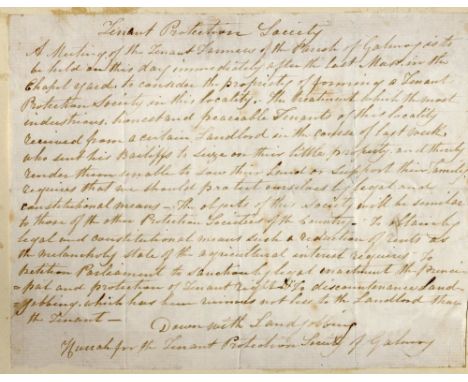 Tenant Protection Society
A Meeting of the Tenant Farmers of the Parish of Galmoy is to
be held on this day immediately after the last Mass, in the
Chapel yard to consider the propriety of forming a Tenant
Protection Society in this locality. The treatment which the most
industrious, honest and peaceable Tenants of this locality
received from a certain Landlord in the course of last week
who sent his Bailiffs to seize on their little property and thereby
render them unable to sow their Land or support their family
requires that we should protect ourselves by legal and
constitutional means – The objects of the Society will be similar
to those of the other Protection Societies of the Country – To obtain by
legal and constitutional means such a reduction of rents as
the melancholy state of the agricultural interest requires To
petition Parliament to sanction by legal enactment the princi
pal and protection of Tenant right & To discountenance Land
jobbing, which has been ruinous not less to the Landlord than
the Tenant –
Down with Landjobbing
Hurrah for the Tenant Protection Society of Galmoy